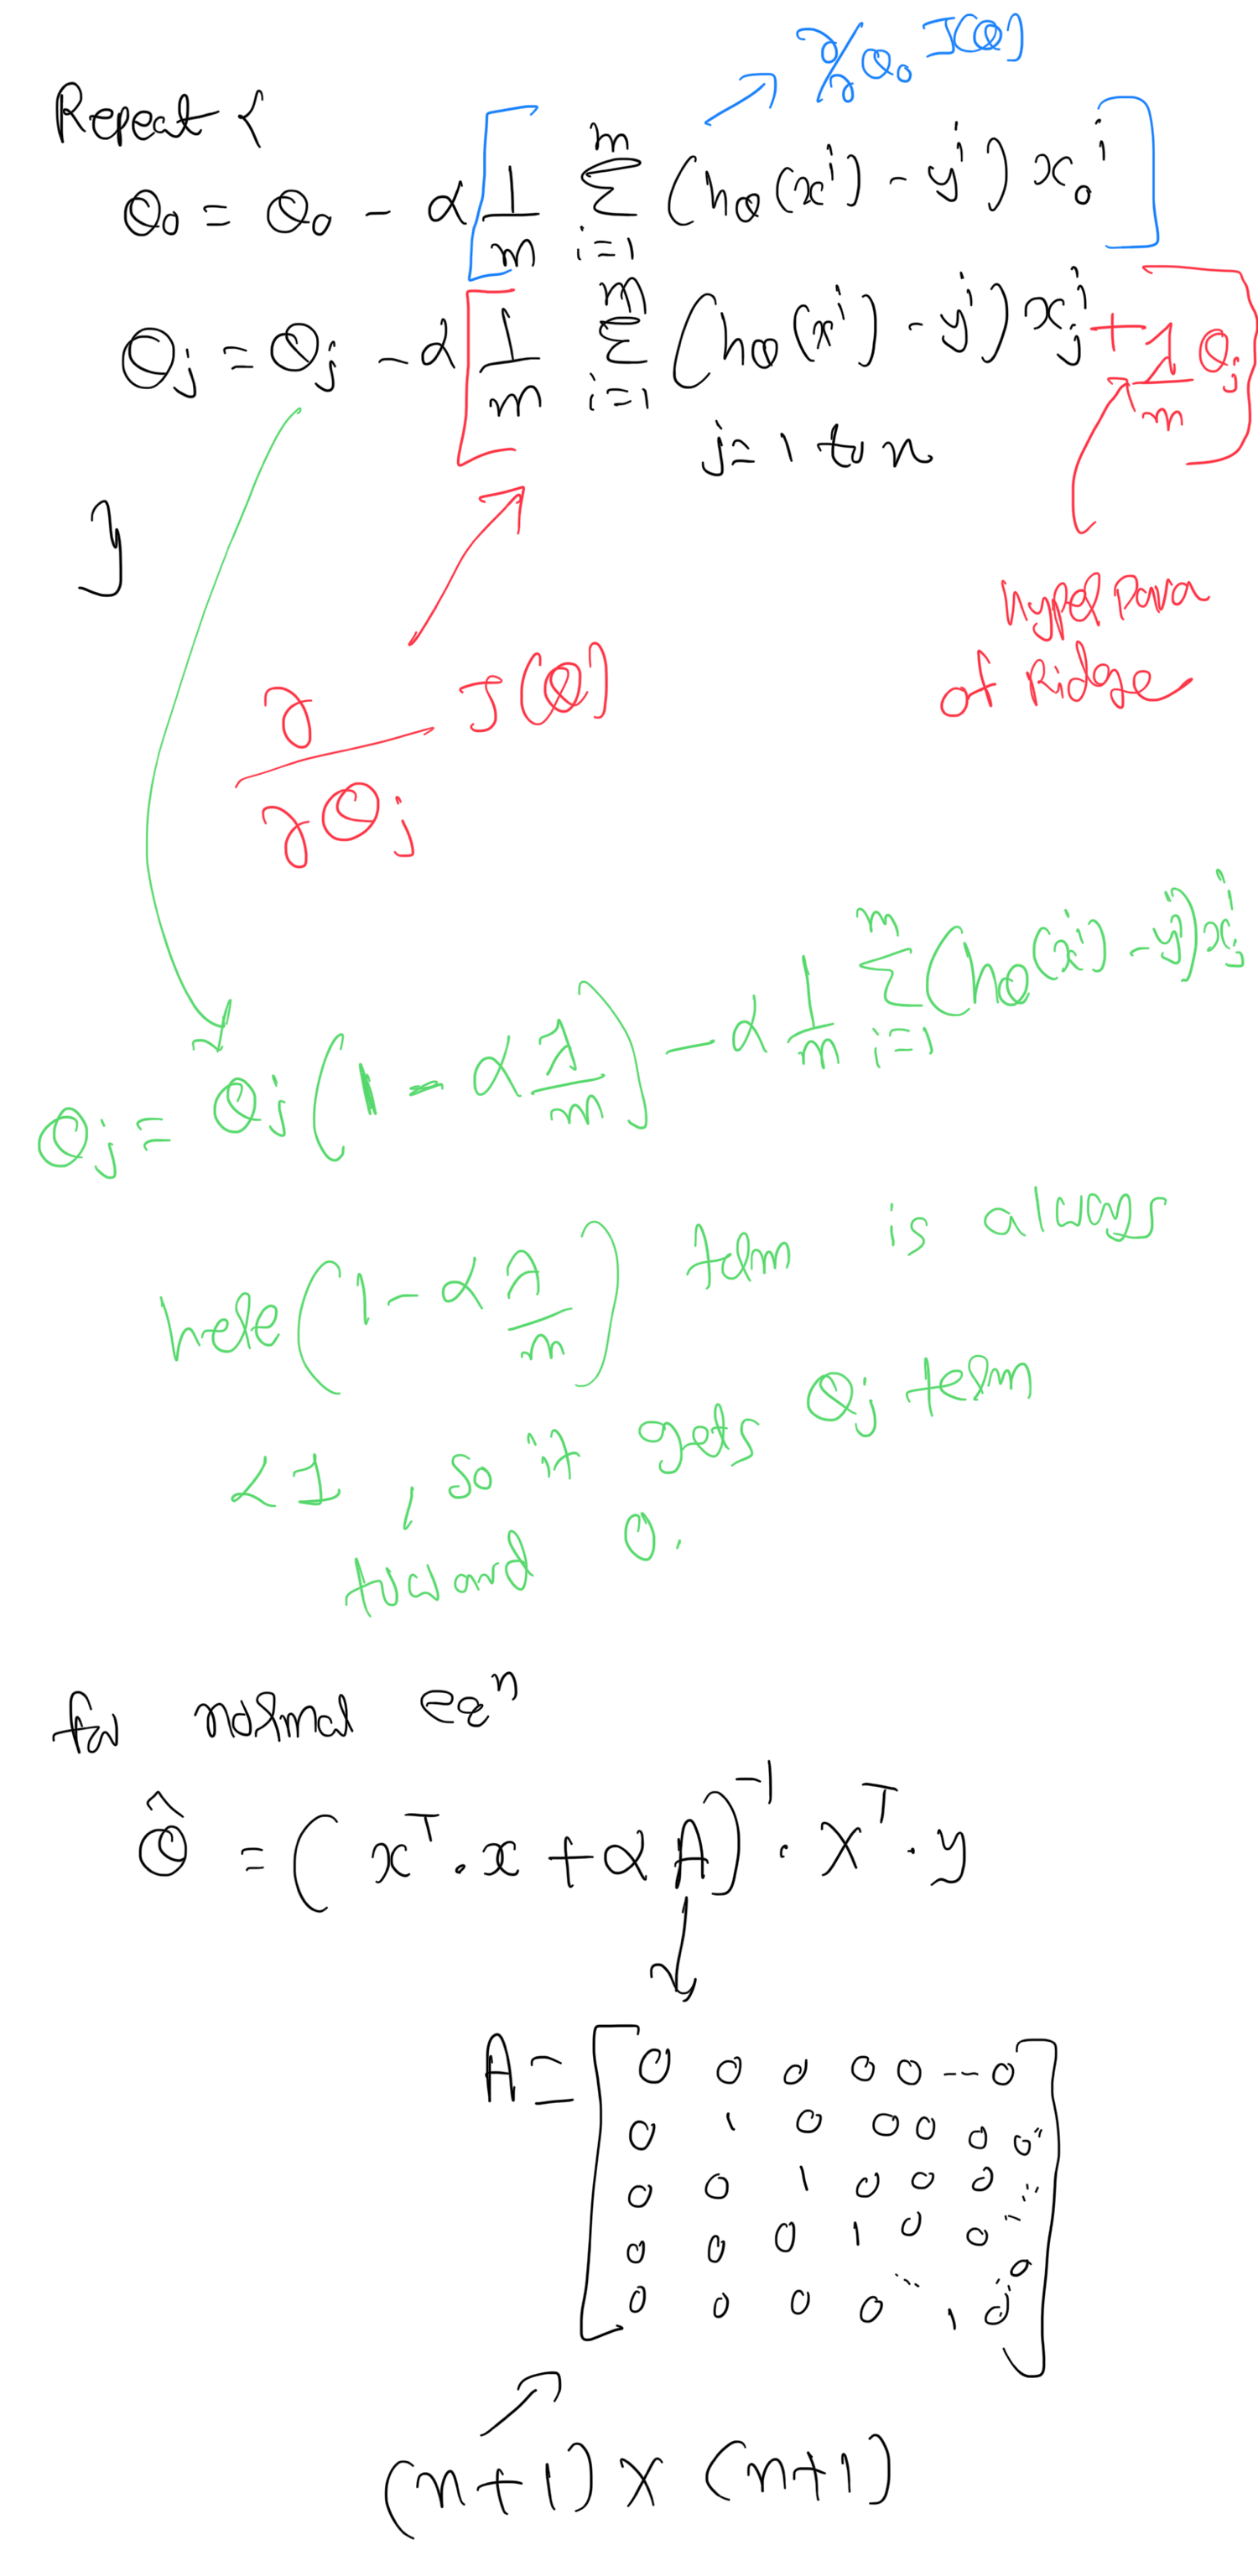 ∂/∂θ₀ J(θ)
Repeat {
θ₀ = θ₀ - α [ 1/m Σ_{i=1}^{m} (hθ(xⁱ) - yⁱ) x₀ⁱ ]
θj = θj - α [ 1/m Σ_{i=1}^{m} (hθ(xⁱ) - yⁱ) xjⁱ + λ/m θj ]
j = 1 to n
}
hyper para
of Ridge
∂/∂θj J(θ)
θj = θj (1 - α λ/m) - α 1/m Σ_{i=1}^{m} (hθ(xⁱ) - yⁱ) xjⁱ
here (1 - α λ/m) term is always
< 1, so it gets θj term
toward 0.
for normal eqⁿ
θ̂ = (xᵀ · x + α A)⁻¹ · Xᵀ · y
A = [ 0 0 0 0 0 --- 0
0 1 0 0 0 0 0 ..
0 0 1 0 0 0 ...
0 0 0 1 0 0 ...
0 0 0 0 ... 1 0 ]
(n+1) x (n+1)